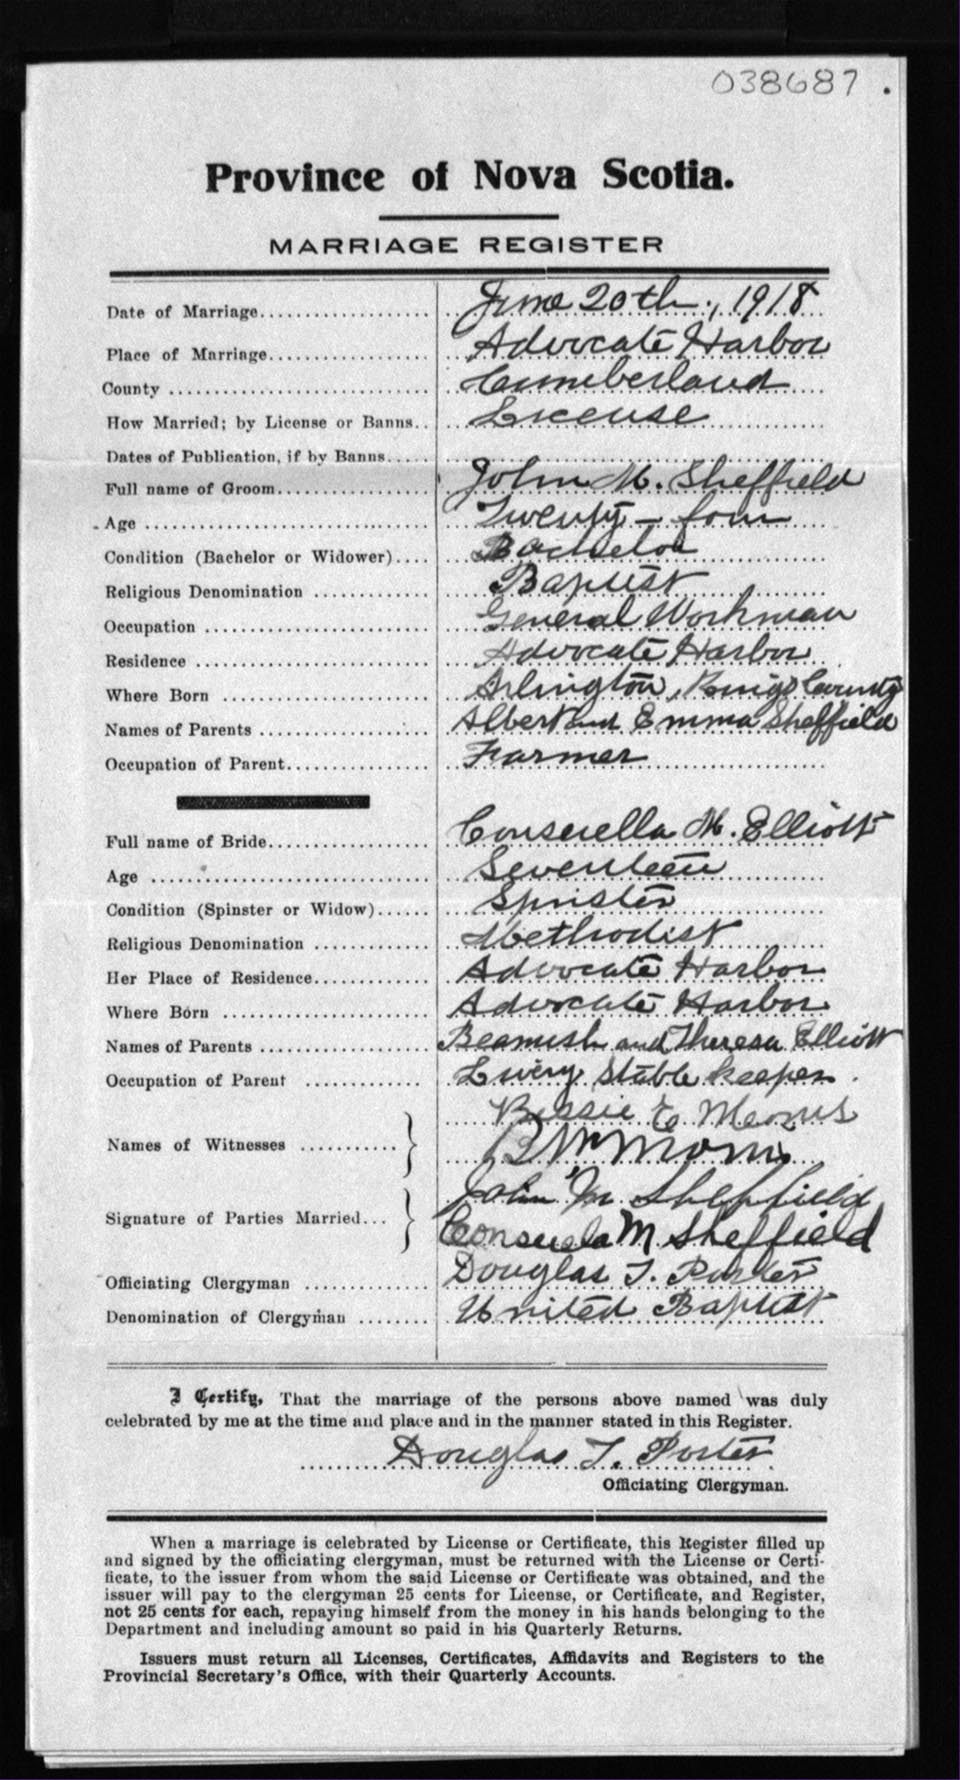 038687
Province of Nova Scotia.
MARRIAGE REGISTER
Date of Marriage.................... June 20th., 1918
Place of Marriage................... Advocate Harbor
County ............................. Cumberland
How Married; by License or Banns.. License
Dates of Publication, if by Banns.....
Full name of Groom.................. John M. Sheffield
Age ................................ Twenty-four
Condition (Bachelor or Widower).... Bachelor
Religious Denomination ............. Baptist
Occupation ......................... General Workman
Residence .......................... Advocate Harbor
Where Born ......................... Arlington, Kings County
Names of Parents ................... Albert and Emma Sheffield
Occupation of Parent................ Farmer
Full name of Bride.................. Conserella M. Elliott
Age ................................ Seventeen
Condition (Spinster or Widow)...... Spinster
Religious Denomination ............. Methodist
Her Place of Residence............. Advocate Harbor
Where Born ......................... Advocate Harbor
Names of Parents ................... Beamish and Theresa Elliott
Occupation of Parent ............... Livery Stable keeper
Bessie E
Names of Witnesses ...........
Signature of Parties Married... John M Sheffield
Consuela M Sheffield
Officiating Clergyman ............. Douglas T. Porter
Denomination of Clergyman ........ United Baptist
I Certify, That the marriage of the persons above named was duly
celebrated by me at the time and place and in the manner stated in this Register.
Douglas T. Porter
Officiating Clergyman.
When a marriage is celebrated by License or Certificate, this Register filled up
and signed by the officiating clergyman, must be returned with the License or Certi-
ficate, to the issuer from whom the said License or Certificate was obtained, and the
issuer will pay to the clergyman 25 cents for License, or Certificate, and Register,
not 25 cents for each, repaying himself from the money in his hands belonging to the
Department and including amount so paid in his Quarterly Returns.
Issuers must return all Licenses, Certificates, Affidavits and Registers to the
Provincial Secretary's Office, with their Quarterly Accounts.